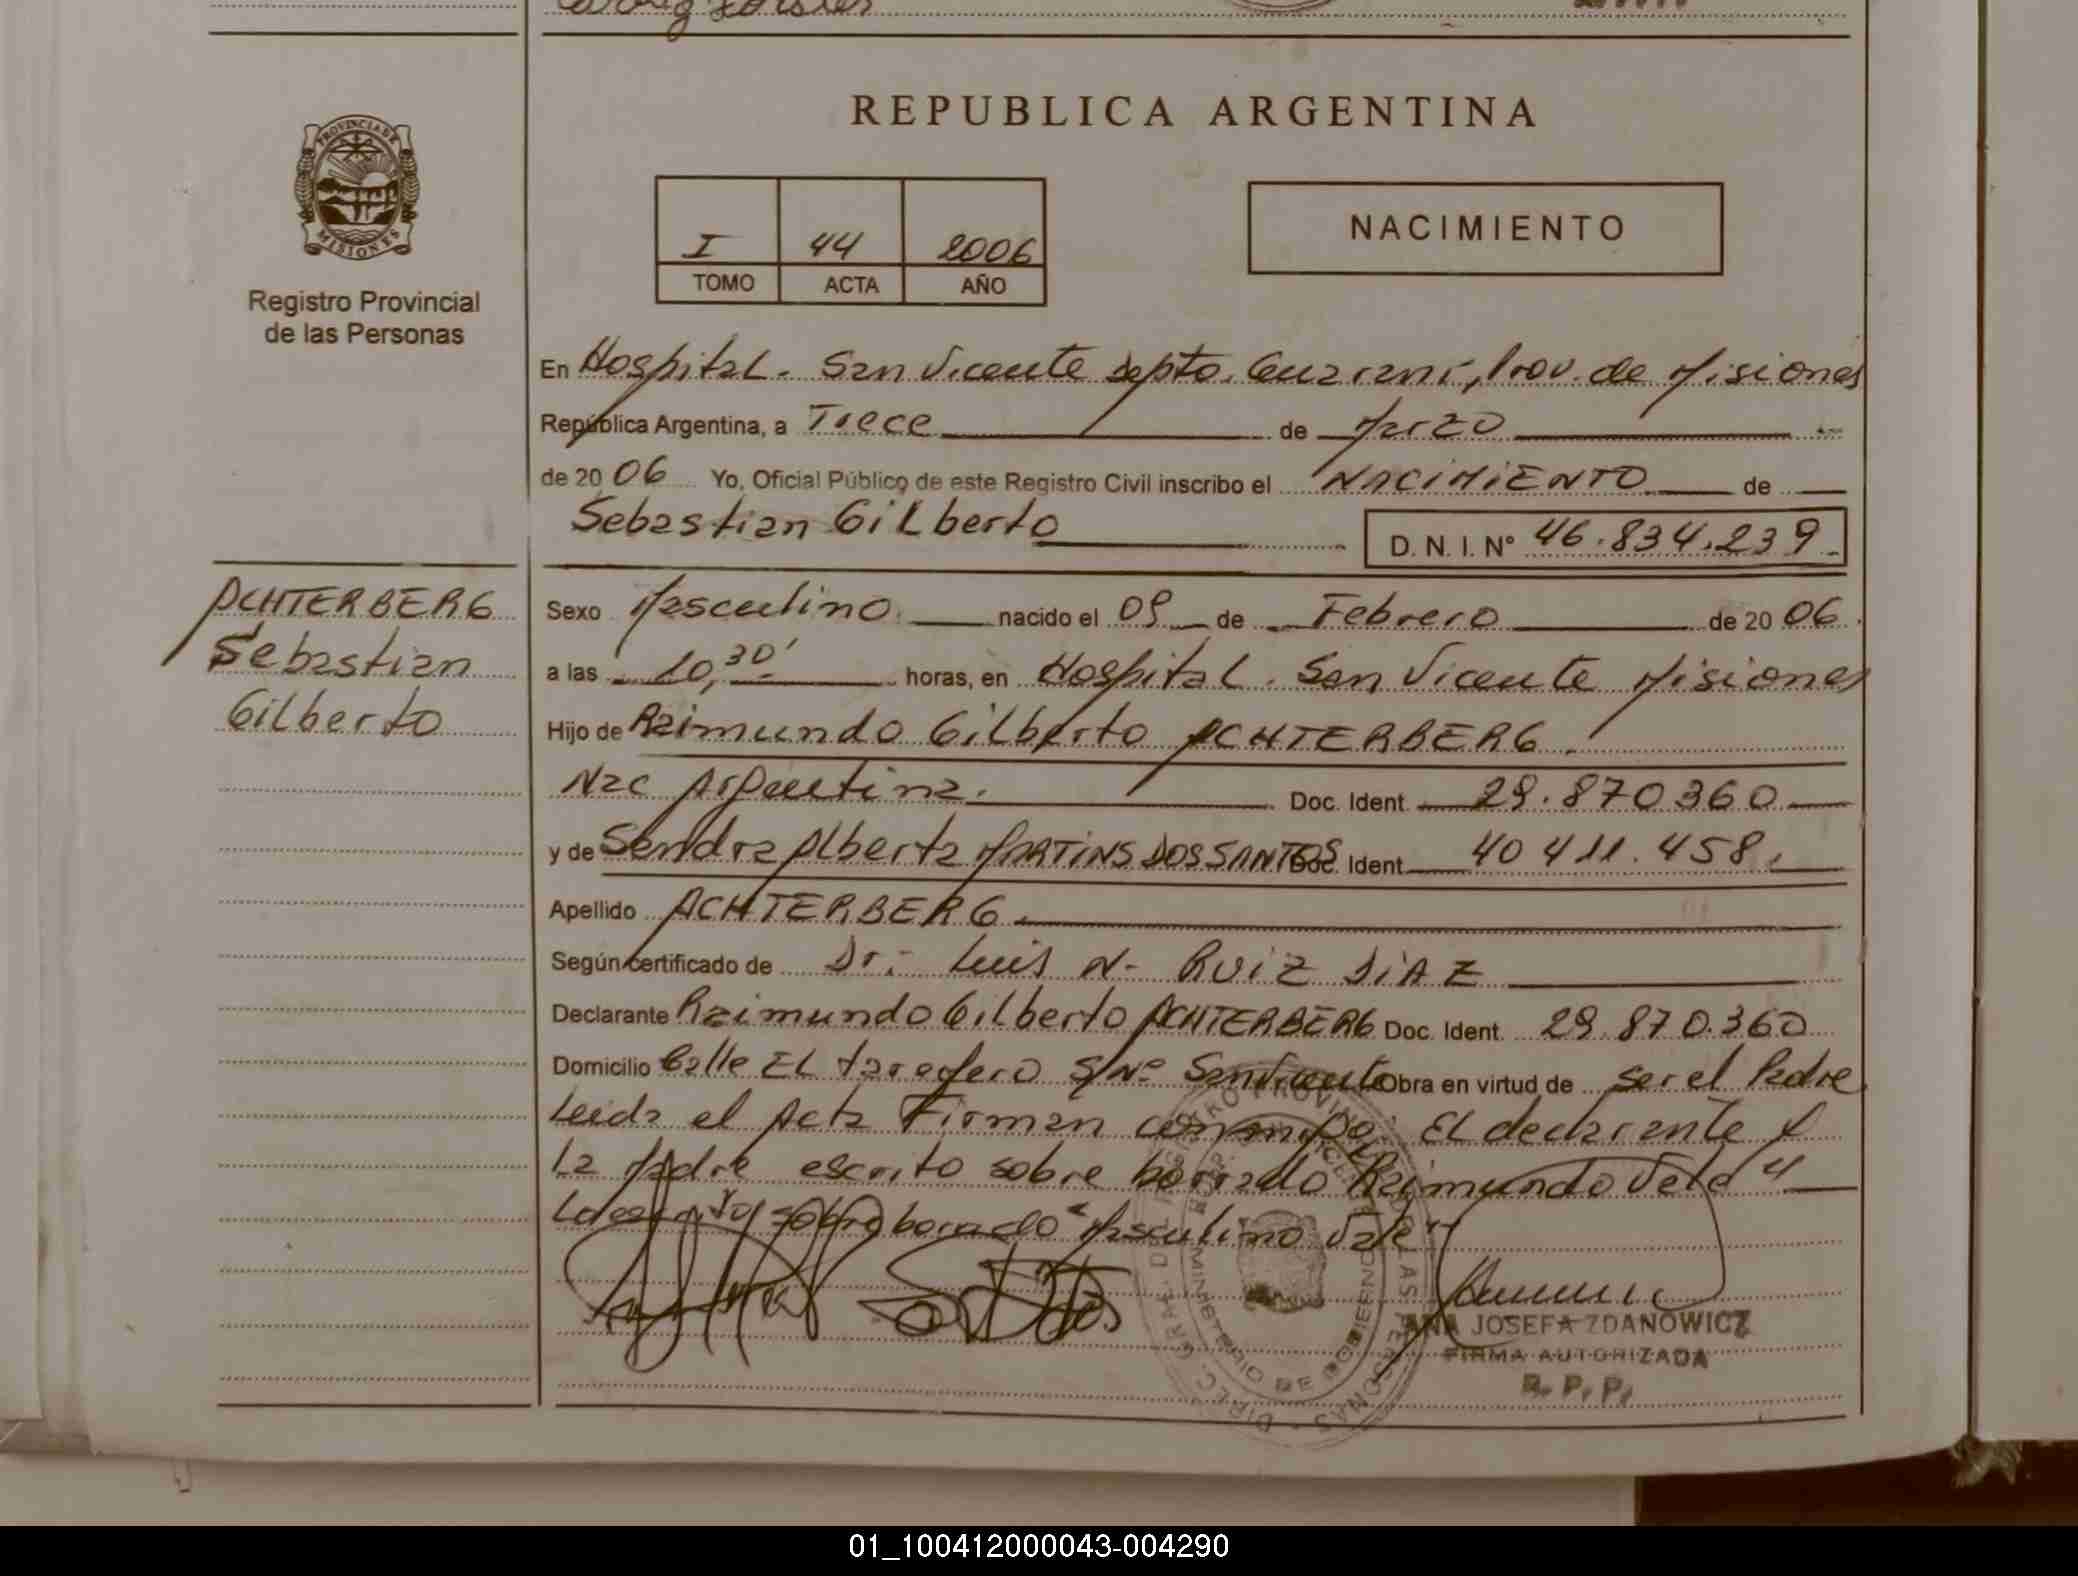 REPUBLICA ARGENTINA
PROVINCIA DE
MISIONES
Registro Provincial
de las Personas
I 44 2006
TOMO ACTA AÑO
NACIMIENTO
En Hospital. San Vicente Depto. Guarani, Prov. de Misiones
República Argentina, a Trece de Marzo
de 20 06 Yo, Oficial Público de este Registro Civil inscribo el NACIMIENTO de
Sebastian Gilberto D. N. I. Nº 46.834.239
ACHTERBERG
Sebastian
Gilberto
Sexo Masculino nacido el 09 de Febrero de 20 06
a las 10,30' horas, en Hospital. San Vicente Misiones
Hijo de Raimundo Gilberto ACHTERBERG.
Nac Argentina. Doc. Ident. 29.870360
y de Sandra Alberta MARTINS DOS SANTOS Doc. Ident. 40 411.458.
Apellido ACHTERBERG.
Según certificado de Dr. Luis N. RUIZ DIAZ
Declarante Raimundo Gilberto ACHTERBERG Doc. Ident. 29.870.360
Domicilio Calle EL tarefero S/Nº San Vicente Obra en virtud de ser el Padre
Leida el Acta Firman conmigo: EL declarante y
La Madre escrito sobre borrado Raimundo Vale"
Lo escrito sobre borrado "Masculino Vale"
MINISTERIO DE GOBIERNO
ANA JOSEFA ZDANOWICZ
FIRMA AUTORIZADA
R. P. P.
01_100412000043-004290